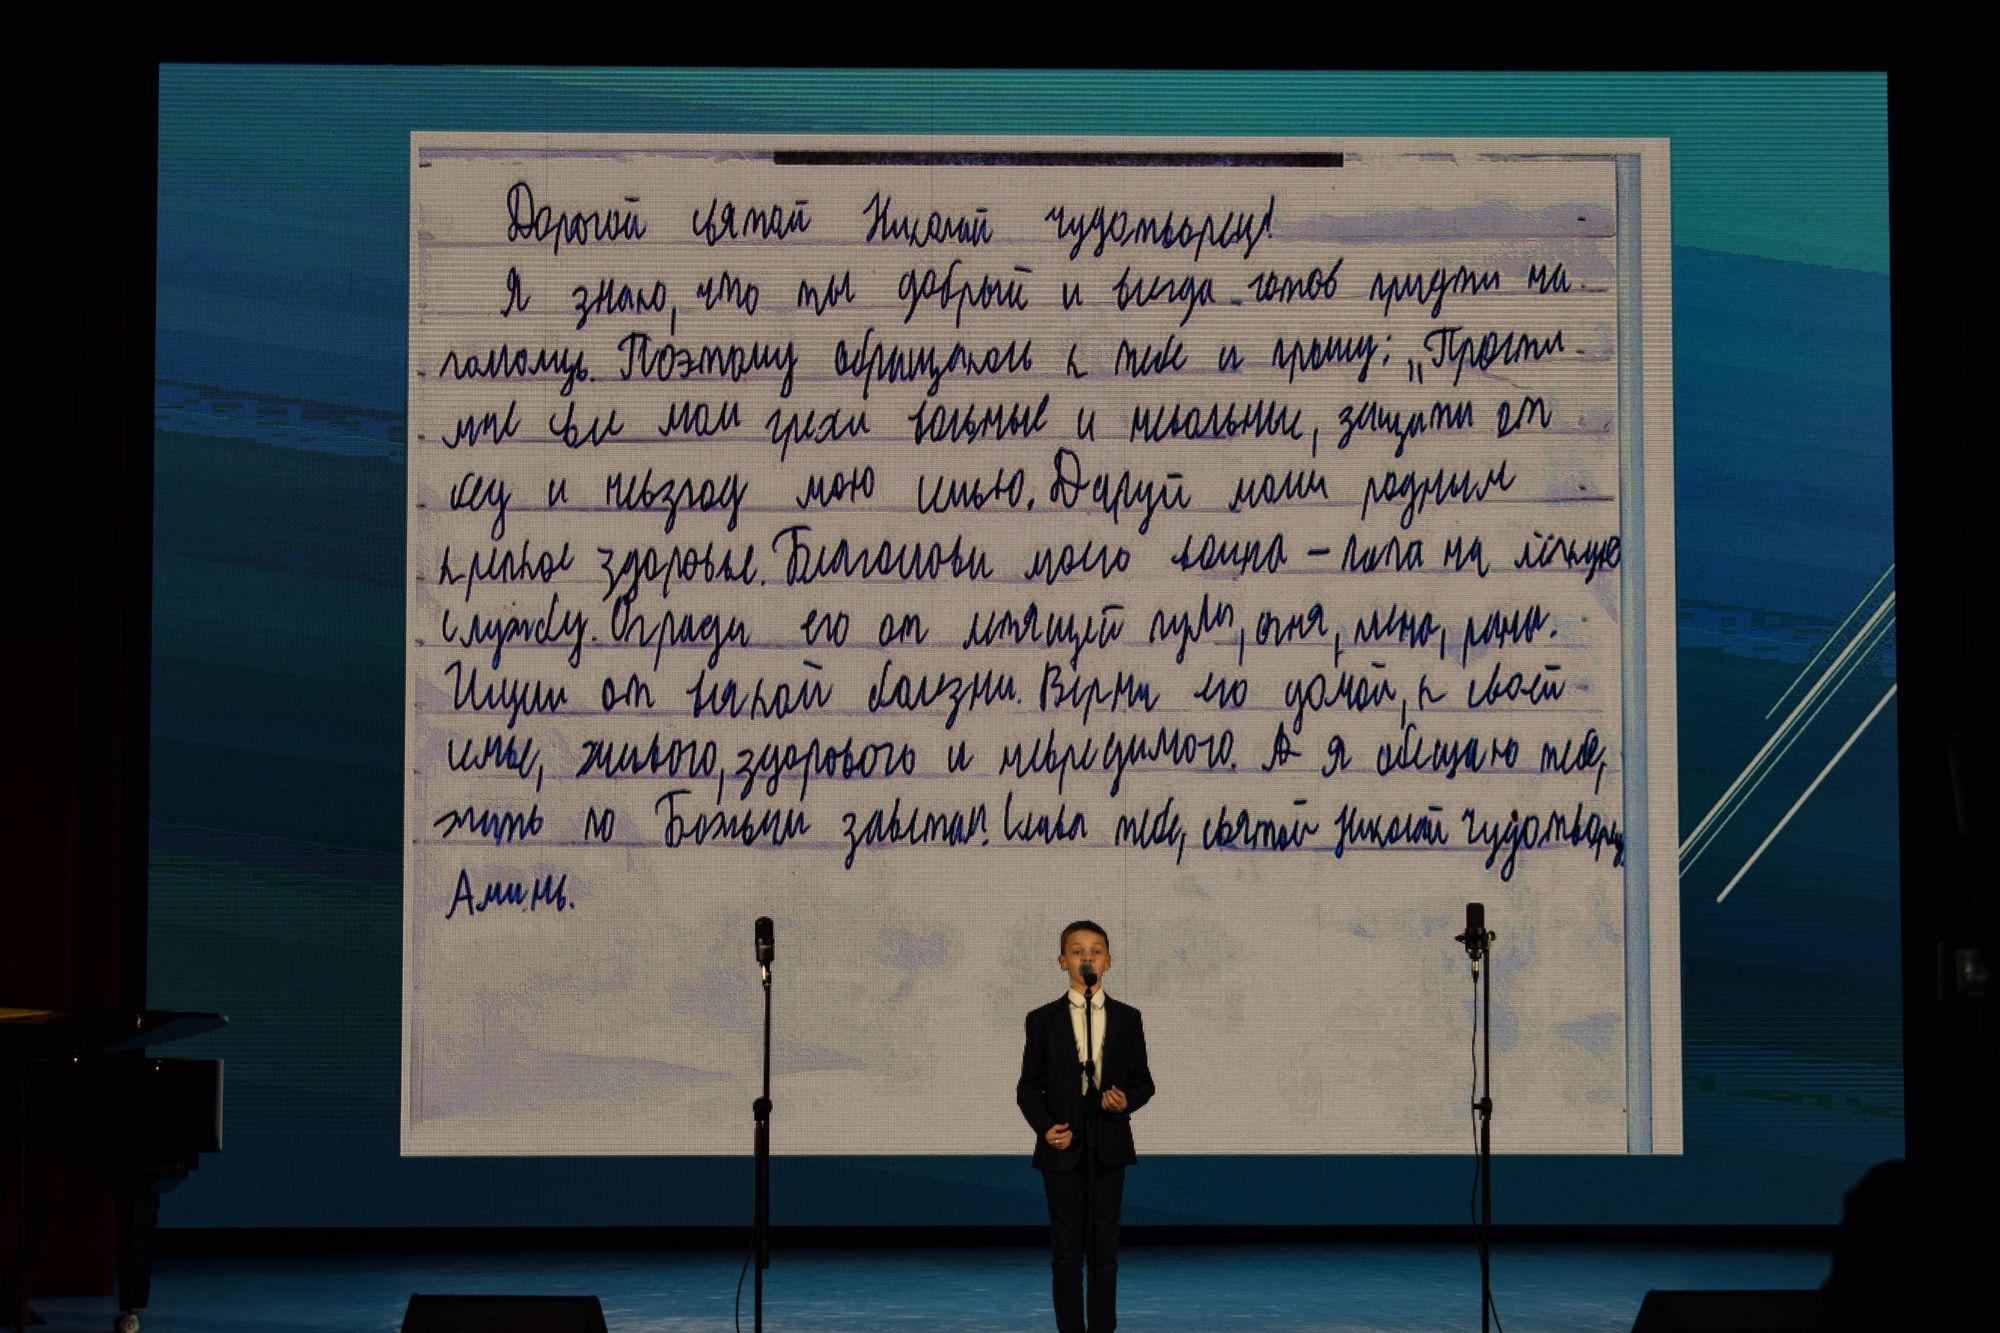 Дорогой святой Николай Чудотворец!
Я знаю, что ты добрый и всегда готов придти на
помощь. Поэтому обращаюсь к тебе и прошу: „Прости
мне все мои грехи вольные и невольные, защити от
бед и невзгод мою семью. Даруй моим родным
крепкое здоровье. Благослови моего воина – папа на лёгкую
службу. Огради его от летящей пули, огня, плена, раны.
Исцели от всякой болезни. Верни его домой, к своей
семье, живого, здорового и невредимого. А я обещаю тебе,
жить по Божьим заветам! Слава тебе, святой Николай Чудотворец
Аминь.